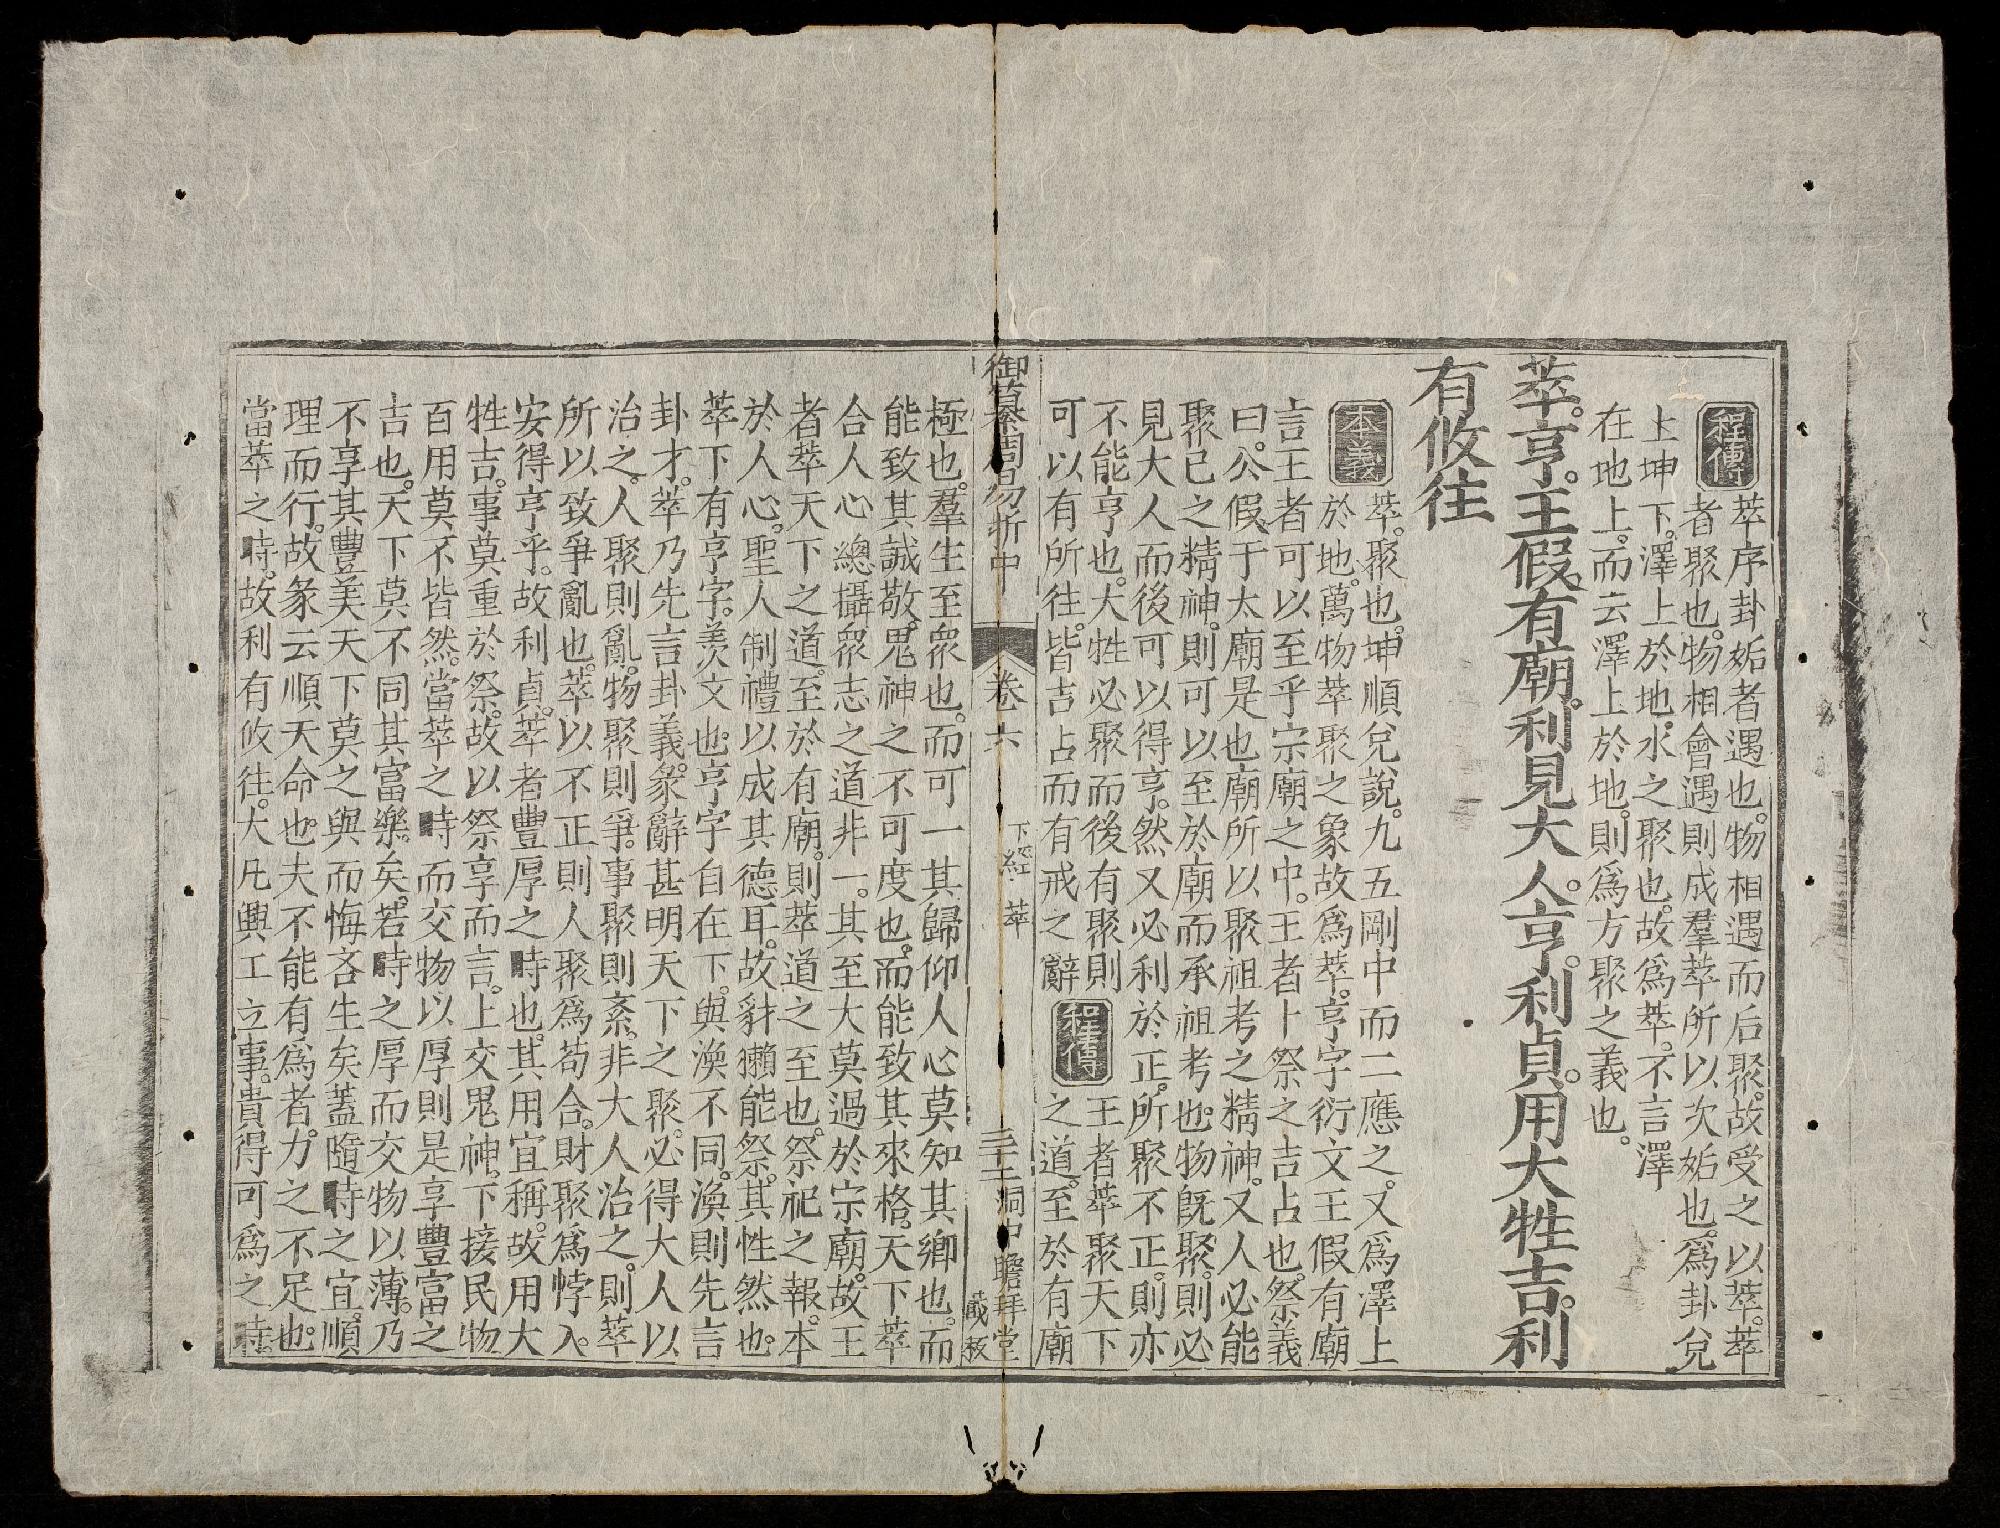 程傳
萃序卦姤者遇也。物相遇而后聚。故受之以萃。萃
者聚也。物相會遇則成羣萃所以次姤也。爲卦兌
上坤下。澤上於地。水之聚也。故爲萃。不言澤
在地上。而云澤上於地。則爲方聚之義也。
萃。亨。王假。有廟。利見大人。亨。利貞。用大牲吉。利
有攸往
本義
萃。聚也。坤順兌說。九五剛中而二應之。又爲澤上
於地。萬物萃聚之象故爲萃。亨字衍文王假有廟
言王者可以至乎宗廟之中。王者卜祭之吉占也。祭義
曰。公假于太廟是也廟所以聚祖考之精神。又人必能
聚己之精神。則可以至於廟而承祖考也。物旣聚。則必
見大人而後可以得亨。然又必利於正。所聚不正。則亦
不能亨也。大牲必聚而後有聚則
可以有所往。皆吉占而有戒之辭
程傳
王者萃聚天下
之道。至於有廟
御纂周易折中
卷六
下經 萃
三十二
洞中
瞻拜堂
藏板
極也。羣生至衆也。而可一其歸仰人心莫知其鄉也。而
能致其誠敬。鬼神之不可度也。而能致其來格。天下萃
合人心總攝衆志之道非一。其至大莫過於宗廟。故王
者萃天下之道。至於有廟。則萃道之至也。祭祀之報。本
於人心。聖人制禮以成其德耳。故豺獺能祭。其性然也。
萃下有亨字。羨文也。亨字自在下。與渙不同。渙則先言
卦才。萃乃先言卦義。彖辭甚明天下之聚。必得大人以
治之。人聚則亂。物聚則爭。事聚則紊。非大人治之。則萃
所以致爭亂也。萃以不正則人聚爲苟合。財聚爲悖入。
安得亨乎。故利貞。萃者豐厚之時也。其用宜稱。故用大
牲吉。事莫重於祭。故以祭享而言。上交鬼神。下接民物
百用莫不皆然。當萃之時而交物以厚則是享豐富之
吉也。天下莫不同其富樂矣。若時之厚而交物以薄。乃
不享其豐美天下莫之與而悔吝生矣蓋隨時之宜。順
理而行。故彖云順天命也。夫不能有爲者。力之不足也。
當萃之時。故利有攸往。大凡興工立事。貴得可爲之時。